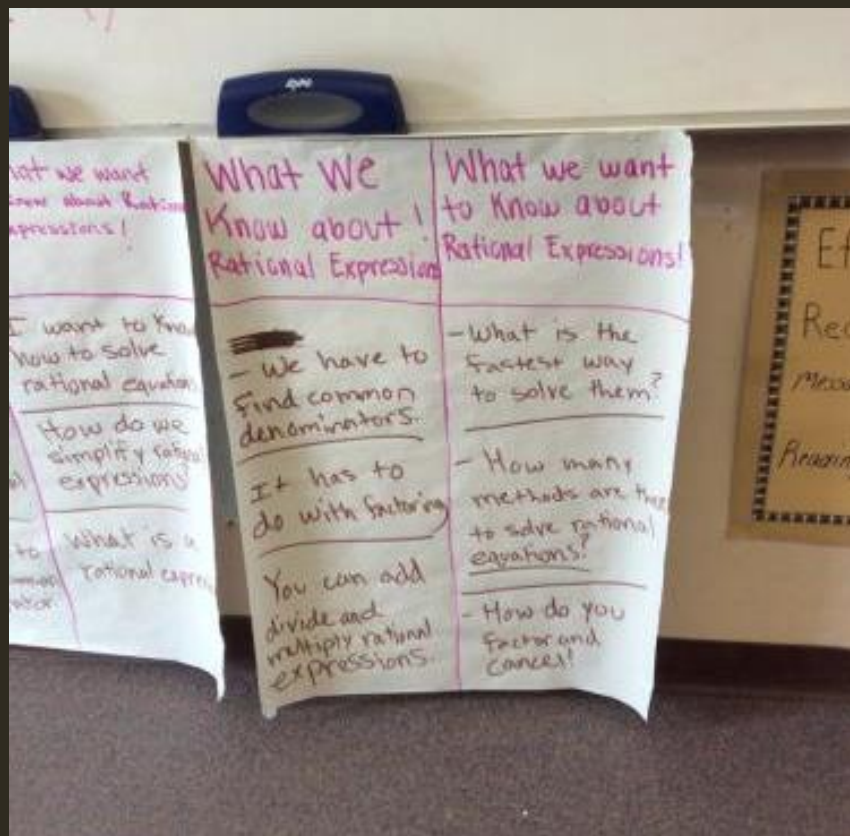 what we want
know about Ration
expressions!
I want to Know
how to solve
rational equations
How do we
simplify rational
expressions?
to
What is a
rational express
expo
What We
Know about!
Rational Expression
- We have to
find common
denominators.
It has to
do with factoring
You can add
divide and
multiply rational
expressions.
What we want
to Know about
Rational Expressions!
- What is the
fastest way
to solve them?
- How many
methods are there
to solve rational
equations?
- How do you
factor and
cancel!
Rea